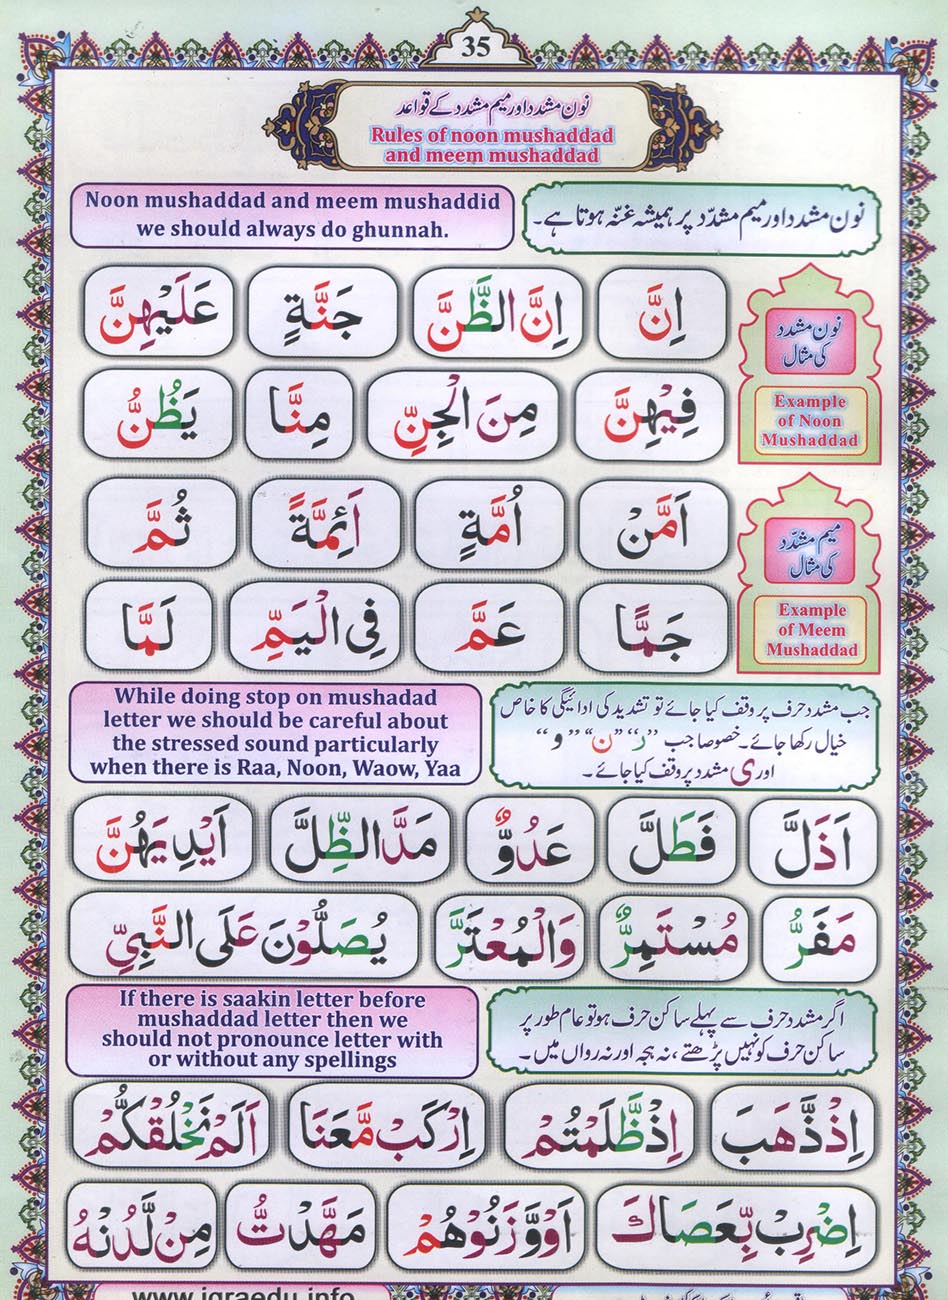 35
نون مشدد اور میم مشدد کے قواعد
Rules of noon mushaddad
and meem mushaddad
نون مشدد اور میم مشدّد پر ہمیشہ غنّہ ہوتا ہے۔
Noon mushaddad and meem mushaddid
we should always do ghunnah.
نون مشدد
کی مثال
Example
of Noon
Mushaddad
اِنَّ
اِنَّ الظَّنَّ
جَنَّةٍ
عَلَيْهِنَّ
فِيْهِنَّ
مِنَ الْجِنِّ
مِنَّا
يَظُنُّ
میم مشدّد
کی مثال
Example
of Meem
Mushaddad
اَمَّنْ
اُمَّةٍ
اَئِمَّةً
ثُمَّ
جَمًّا
عَمَّ
فِى الْيَمِّ
لَمَّا
جب مشدد حرف پر وقف کیا جائے تو تشدید کی ادائیگی کا خاص
خیال رکھا جائے۔ خصوصا جب ”ر“ ”ن“ ”و“
اور ی مشدد پر وقف کیا جائے۔
While doing stop on mushadad
letter we should be careful about
the stressed sound particularly
when there is Raa, Noon, Waow, Yaa
اَذَلَّ
فَطَلَّ
عَدُوٌّ
مَدَّ الظِّلَّ
اَيْدِيَهُنَّ
مَفَرُّ
مُسْتَمِرٌّ
وَالْمُعْتَرَّ
يُصَلُّوْنَ عَلَى النَّبِيِّ
اگر مشدد حرف سے پہلے ساکن حرف ہو تو عام طور پر
ساکن حرف کو نہیں پڑھتے، نہ ہجہ اور نہ رواں میں۔
If there is saakin letter before
mushaddad letter then we
should not pronounce letter with
or without any spellings
اِذْذَّهَبَ
اِذْظَّلَمْتُمْ
اِرْكَبْ مَّعَنَا
اَلَمْ نَخْلُقْكُّمْ
اِضْرِبْ بِّعَصَاكَ
اَوْوَّزَنُوْهُمْ
مَهَّدْتُّ
مِنْ لَّدُنْهُ
www.iqraedu.info